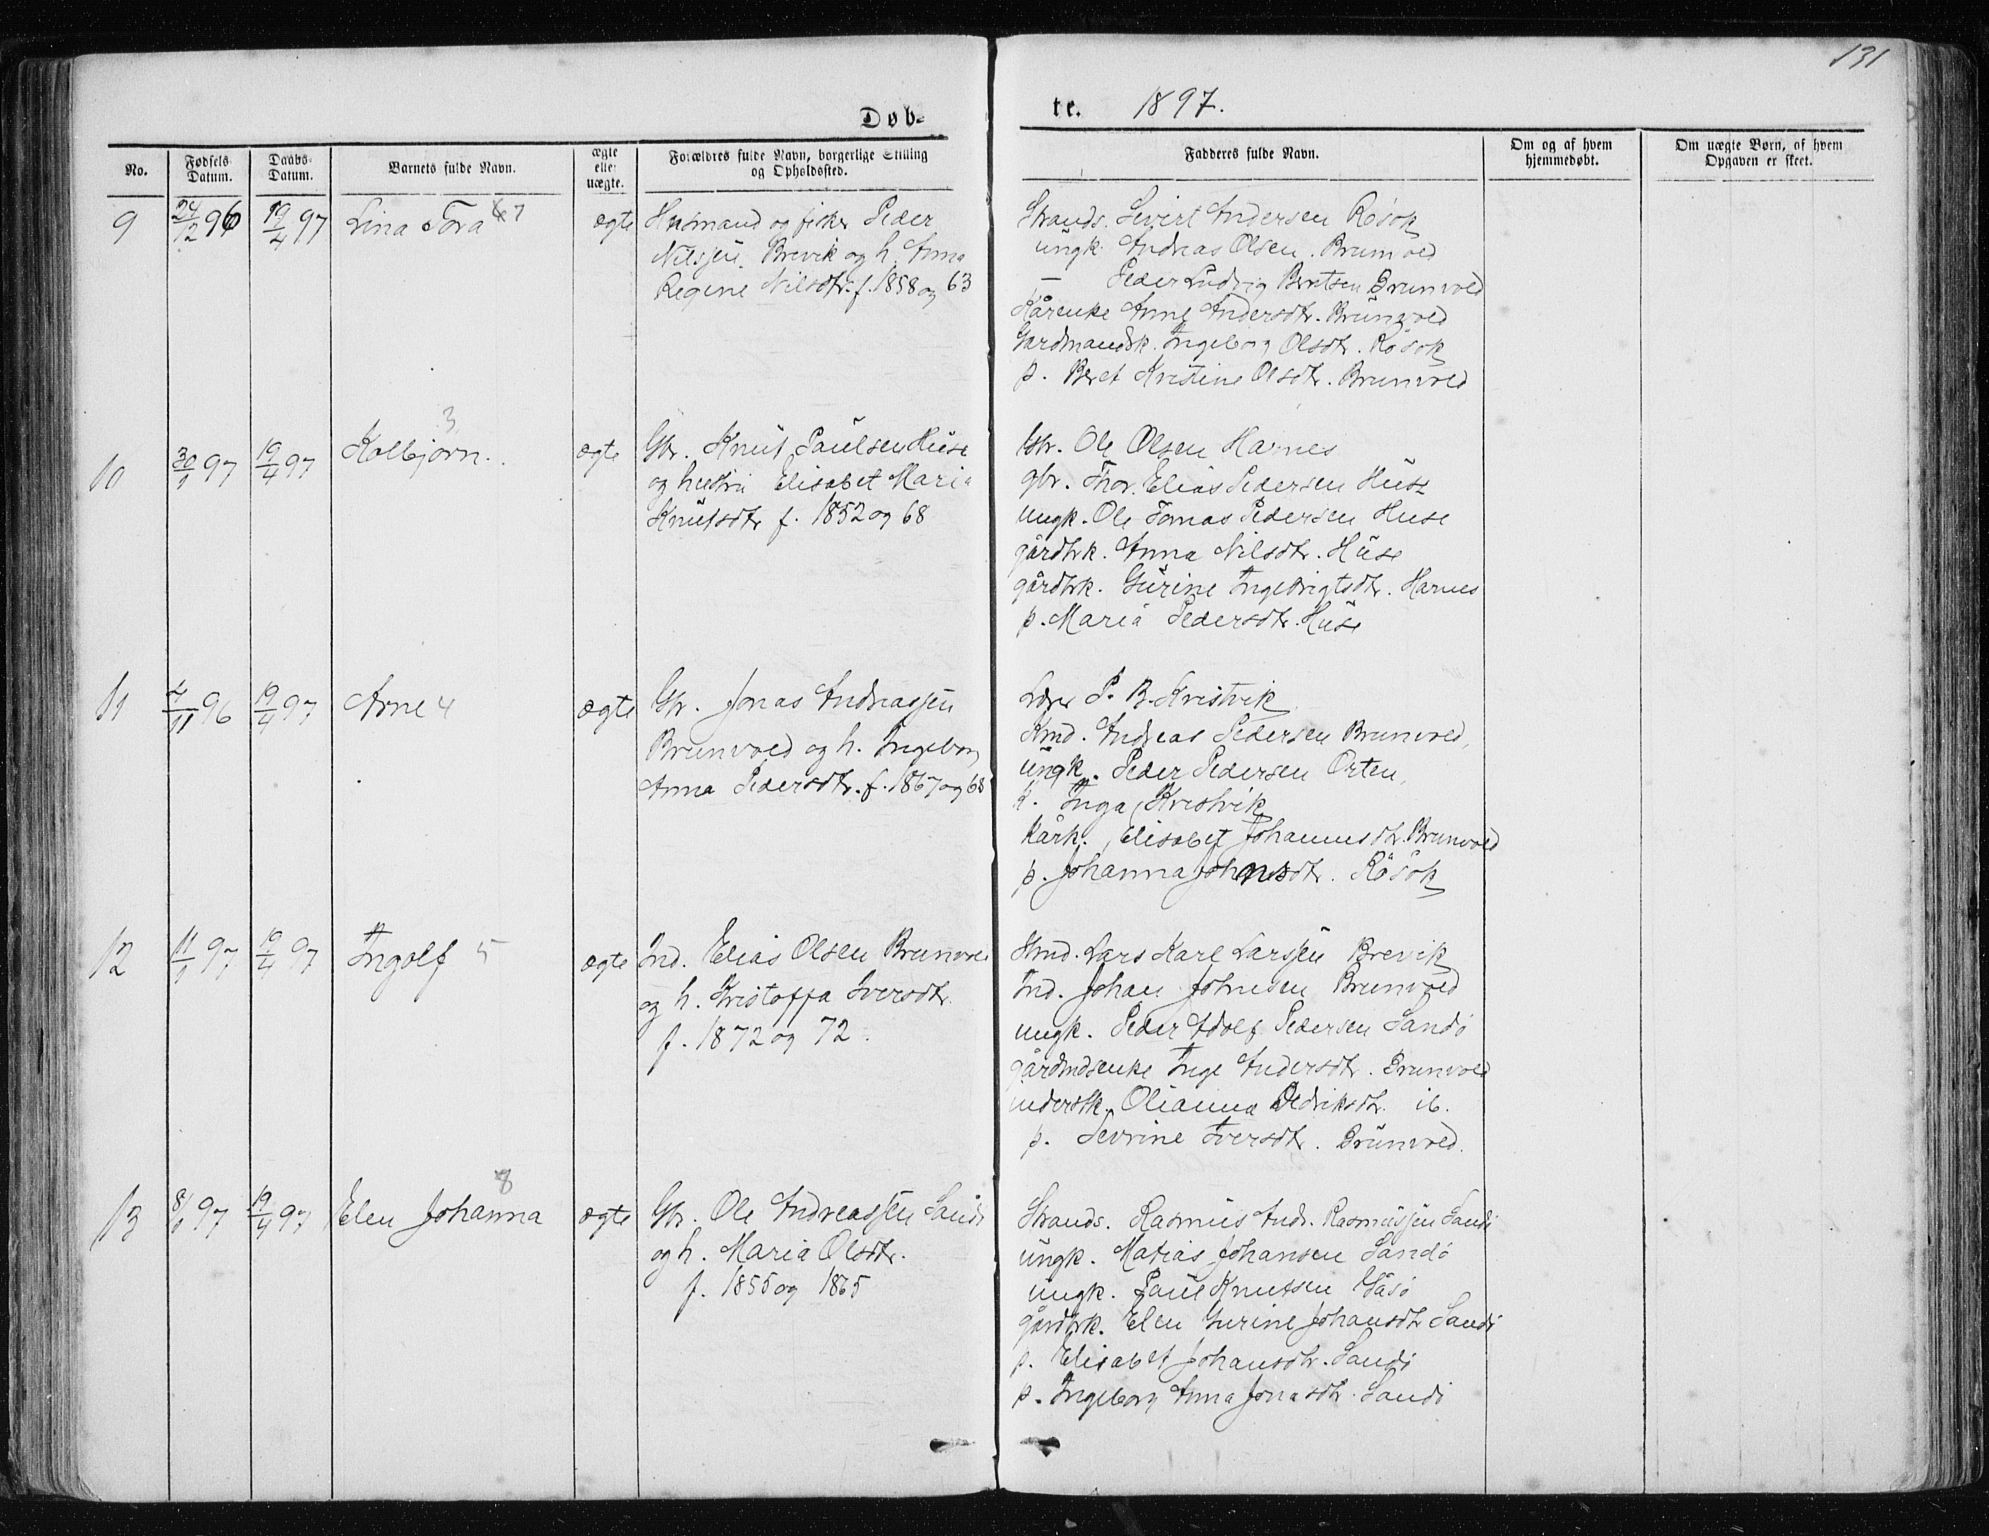 131
Døb-
te. 1897.
No.
Fødsels Datum.
Daabs-Datum.
Barnets fulde Navn.
ægte eller uægte.
Forældres fulde Navn, borgerlige Stilling og Opholdssted.
Fadderes fulde Navn.
Om og af hvem hjemmedøbt.
Om uægte Børn, af hvem Opgaven er skeet.
9 24/12 96 19/4 97 Lina Tora 7 ægte
Husmand og fisker Peder
Nilssen Brevik og h. Anna
Regine Nilsdtr. f. 1858 og 63
Strands. Sivert Andersen Rösok
ungk. Andreas Olsen. Brunvold
— Peder Ludvig Berntsen Brunvold
Kårenke Anne Andersdtr. Brunvold
Gardmandsk. Ingeborg Olsdtr. Rösok
p. Beret Kristine Olsdtr. Brunvold
10 30/1 97 19/4 97 Kolbjørn. 3 ægte
Gbr. Knut Paulsen Huse
og hustru Elisabet Maria
Knutsdtr f. 1852 og 68
Gbr. Ole Olsen Harnes
gbr. Thor. Elias Pedersen Huse
ungk. Ole Tomas Pedersen Huse
gårdbrk. Anna Nilsdtr. Huse
gårdbrk. Gurine Ingebrigtsdtr. Harnes
p. Maria Pedersdtr. Huse
11 4/11 96 19/4 97 Arne 4 ægte
Gbr. Jonas Andreassen
Brunvold og h. Ingeborg
Anna Pedersdtr. f. 1867 og 68
Lærer P. B. Kristvik
Kmd. Andreas Pedersen Brunvold,
ungk. Peder Pedersen Orten,
k. Inga Kristvik
Kårk. Elisabet Johannesdtr. Brunvold
p. Johanna Johnsdtr. Rösok
12 11/1 97 19/4 97 Ingolf 5 ægte
Ind. Elias Olsen Brunvold
og h. Kristoffa Iversdtr.
f. 1872 og 72.
Hmd. Lars Karl Larssen Brevik
Ind. Johan Johnsen Brunvold
ungk. Peder Adolf Pedersen Sandö
gårdmdsenke Inge Andersdtr. Brunvold
inderstk. Olianna Dedriksdtr. ib.
p. Sevrine Iversdtr. Brunvold.
13 8/1 97 19/4 97 Elen Johanna 8 ægte
Gbr. Ole Andreassen Sandö
og h. Maria Olsdtr.
f. 1855 og 1865
Strands. Rasmus Andr. Rasmussen Sandö
ungk. Matias Johansen Sandö
ungk. Paul Knutsen Gåsö
gårdbrk. Elen Gurine Johansdtr Sandö
p. Elisabet Johansdtr. Sandö
p. Ingeborg Anna Jonasdtr. Sandö